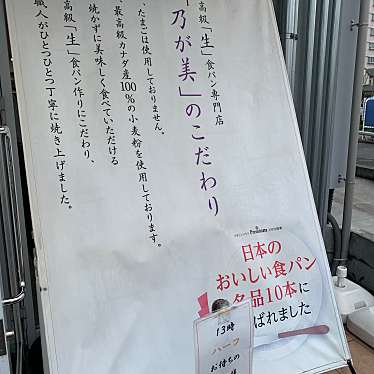 高級「生」食パン専門店
乃が美」のこだわり
、たまごは使用しておりません。
最高級カナダ産100%の小麦粉を使用しております。
焼かずに美味しく食べていただける
高級「生」食パン作りにこだわり、
職人がひとつひとつ丁寧に焼き上げました。
Premium
日本の
おいしい食パン
名品10本に
ばれました
13時
ハーフ
お待ちの